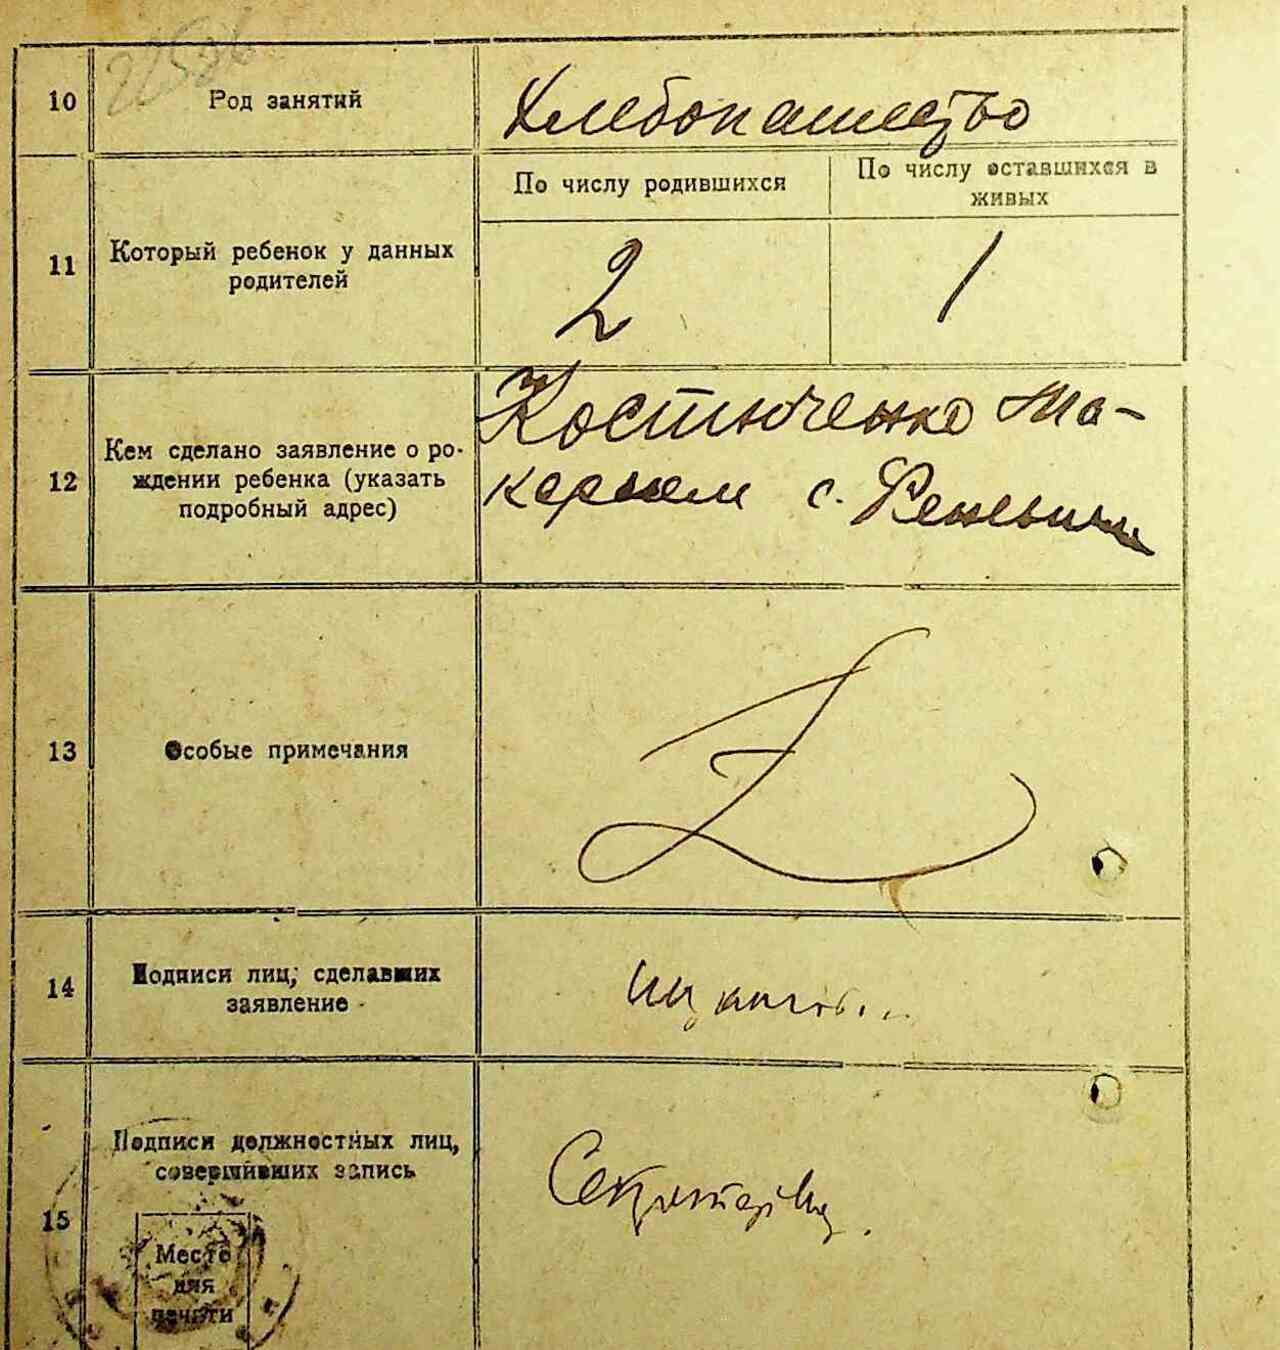 22536
10
Род занятий
Хлебопашество
11
Который ребенок у данных
родителей
По числу родившихся
По числу оставшихся в
живых
2
1
12
Кем сделано заявление о ро-
ждении ребенка (указать
подробный адрес)
Костюченко Ма-
каром с.
13
Особые примечания
Z
14
Подписи лиц, сделавших
заявление
15
Подписи должностных лиц,
совершивших запись
Место
для
печати
Секретарь